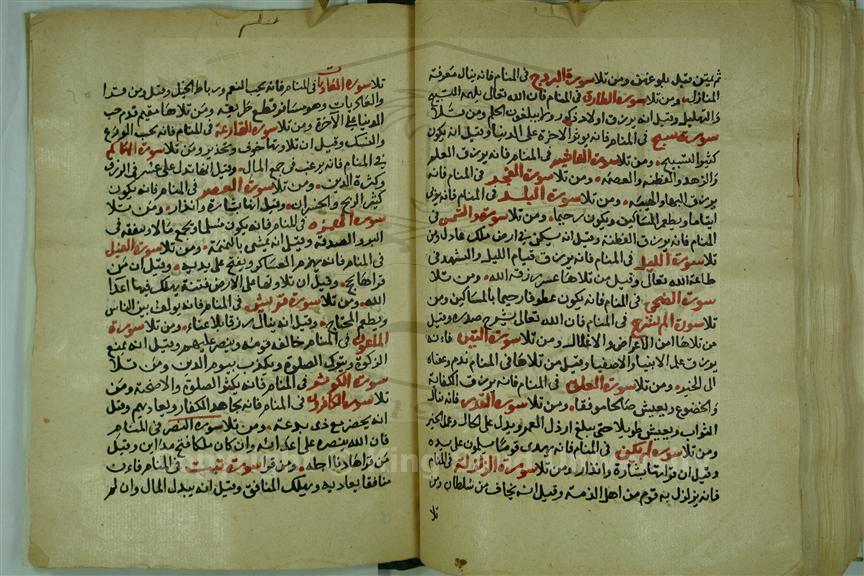 ثم يتمن وقيل بلوغ ومن تلا سورة البروج في المنام فانه ينال معرفة
المنازل ومن تلا سورة الطارق في المنام فان الله تعالى يلهمه التسبيح
والتهليل وقيل انه يرزق اولاد ذكور ومن تلا
سورة سبح في المنام فانه يوثر الاخرة على الدنيا وقيل انه يكون
كثير التسبيح ومن تلا سورة الغاشيه في المنام فانه يرزق العلم
والزهد والفطنه ومن تلا سورة الفجر في المنام فانه
يرزق البها والهيبه ومن تلا سورة البلد في المنام فانه
ايتاما ويطعم المساكين ويكون رحيما ومن تلا سورة والشمس في
المنام فانه يرزق الفطنه وقيل انه يسكن في ارض ملك عادل ومن
تلا سورة الليل في المنام فانه يرزق قيام الليل والتهجد في
طاعة الله تعالى وقيل من تلاها عسر رزقه الله ومن تلا
سورة الضحى في المنام فانه يكون عطوفا رحيما بالمساكين ومن
تلا سورة الم نشرح في المنام فان الله تعالى يشرح صدره وقيل
من تلاها امن الاعراض ومن تلا سورة التين فانه
يرزق عمل الانبيا والاصفيا وقيل من تلاها في المنام ندم
الى الخير ومن تلا سورة العلق في المنام فانه يرزق الكفاية
والخضوع ويعيش صالحا موفقا ومن تلا سورة القدر فانه ينال
الثواب ويعيش طويلا حتى يبلغ ارذل العمر ويدل على الكمال وعلى الخير
ومن تلا سورة لم يكن في المنام فانه يهدى قوما على يده
وقيل ان قراءتها بشارة وانذار ومن تلا سورة الزلزلة في المنام
فانه يزلزل به قوم من اهل الذمة وقيل انه يخاف من سلطان ومن
تلا
تلا سورة العاديات في المنام فانه يحب النعم ورباط الخيل وقيل ومن قرا
والعاديات وهو مسافر قطع طريقه ومن تلاها مقيم قدم حب
الدنيا على الآخرة ومن تلا سورة القارعة في المنام فانه يحب الورع
والنسك وقيل ان تلاوتها خوف وتحذير ومن تلا سورة الهاكم
في المنام فانه يرغب في جمع المال وقيل انها تدل على عسر في الرزق
وكثرة الدين ومن تلا سورة العصر في المنام فانه يكون
كثير الربح والخسران وقيل انها بشارة وانذار ومن تلا
سورة الهمزة في المنام فانه يكون ويجمع مالا وينفقه في
البر والصدقه وقيل انه يمشى بالنميمة ومن تلا سورة الفيل
في المنام فانه يهزم العساكر ويفتح على يديه وقيل ان من
قراها يحج وقيل ان تلاوتها على الارض فتنة يهلك فيها اعدا
الله ومن تلا سورة قريش في المنام فانه يولف بين الناس
ويطعم المحتاج وقيل انه ينال رزقا بلا عناء ومن تلا سورة
الماعون في المنام خالفه قومه وينصر عليهم وقيل انه يمنع
الزكوة ويترك الصلوة ويكذب بيوم الدين ومن تلا
سورة الكوثر في المنام فانه يكثر الصلوة والاضحية ومن
تلا سورة الكافرون في المنام فانه يجاهد الكفار ويعاديهم وقيل
انه يحضر مع ذي بدعة ومن تلا سورة النصر في المنام
فان الله ينصره على اعدائه وان كان ملكا فتح مداين وقيل
من قراها دنا اجله ومن قرا سورة تبت في المنام فان
منافقا يعاديه ويهلك المنافق وقيل انه يبدل المال وان لم